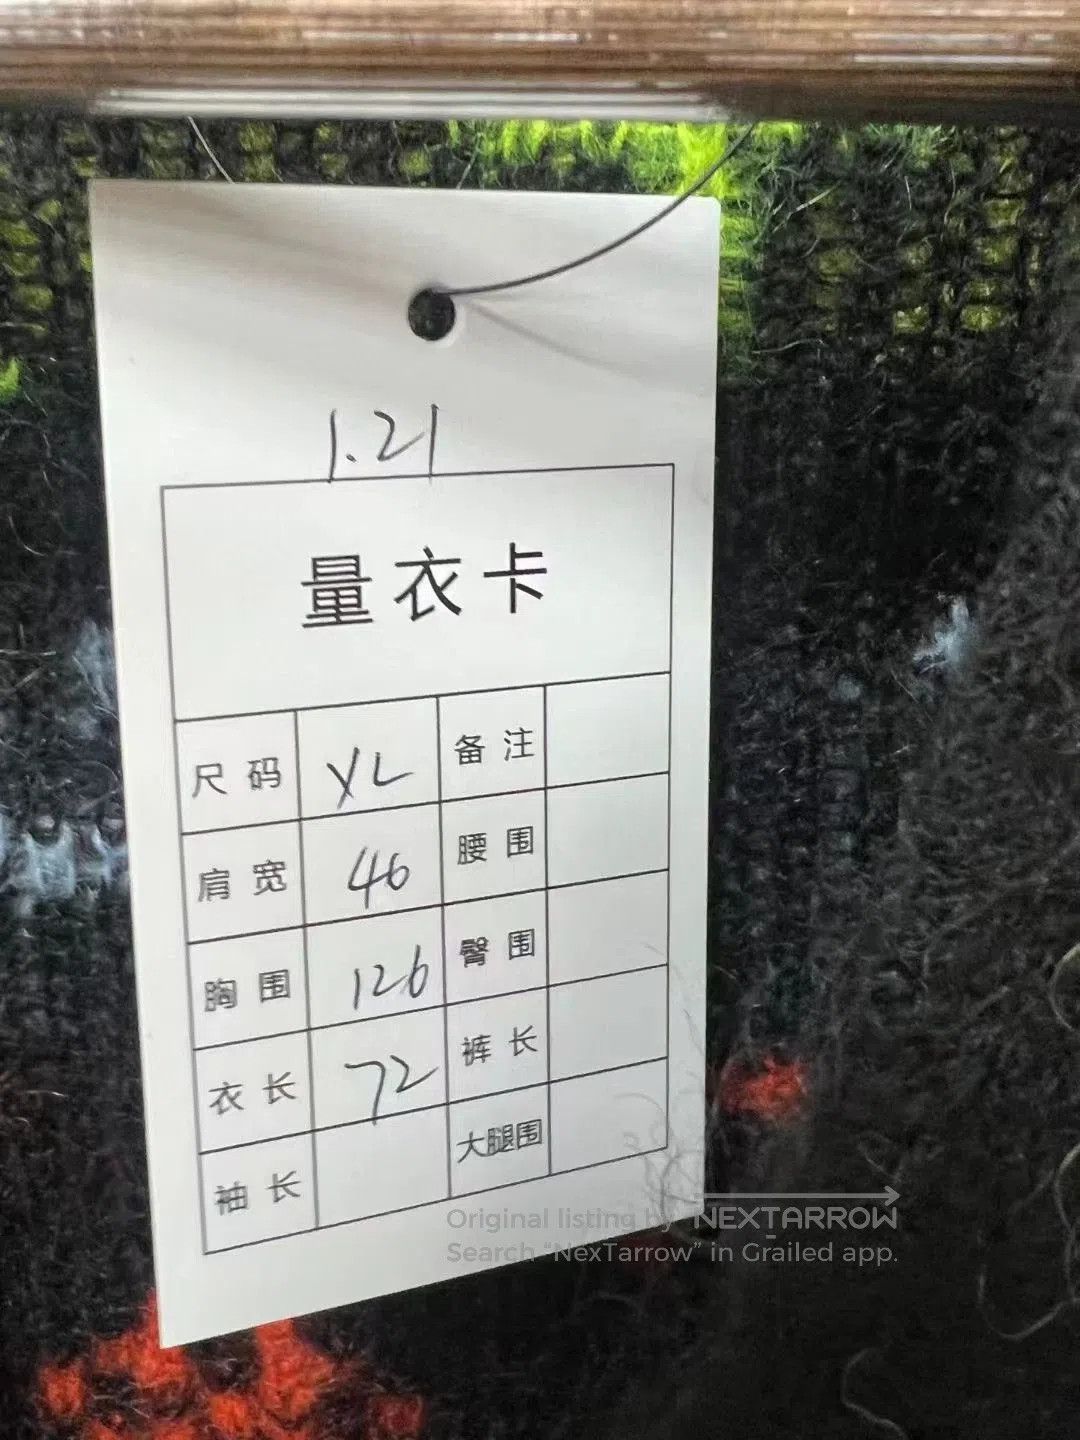 1.21
量衣卡
尺码 XL 备注
肩宽 46 腰围
胸围 126 臀围
衣长 72 裤长
袖长 大腿围
Original listing by NEXTARROW
Search “NexTarrow” in Grailed app.